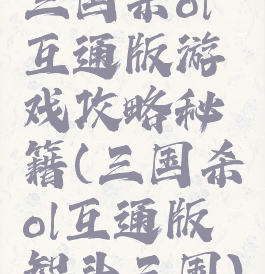 三国杀ol
互通版游
戏攻略秘
籍(三国杀
ol互通版
智斗三国)